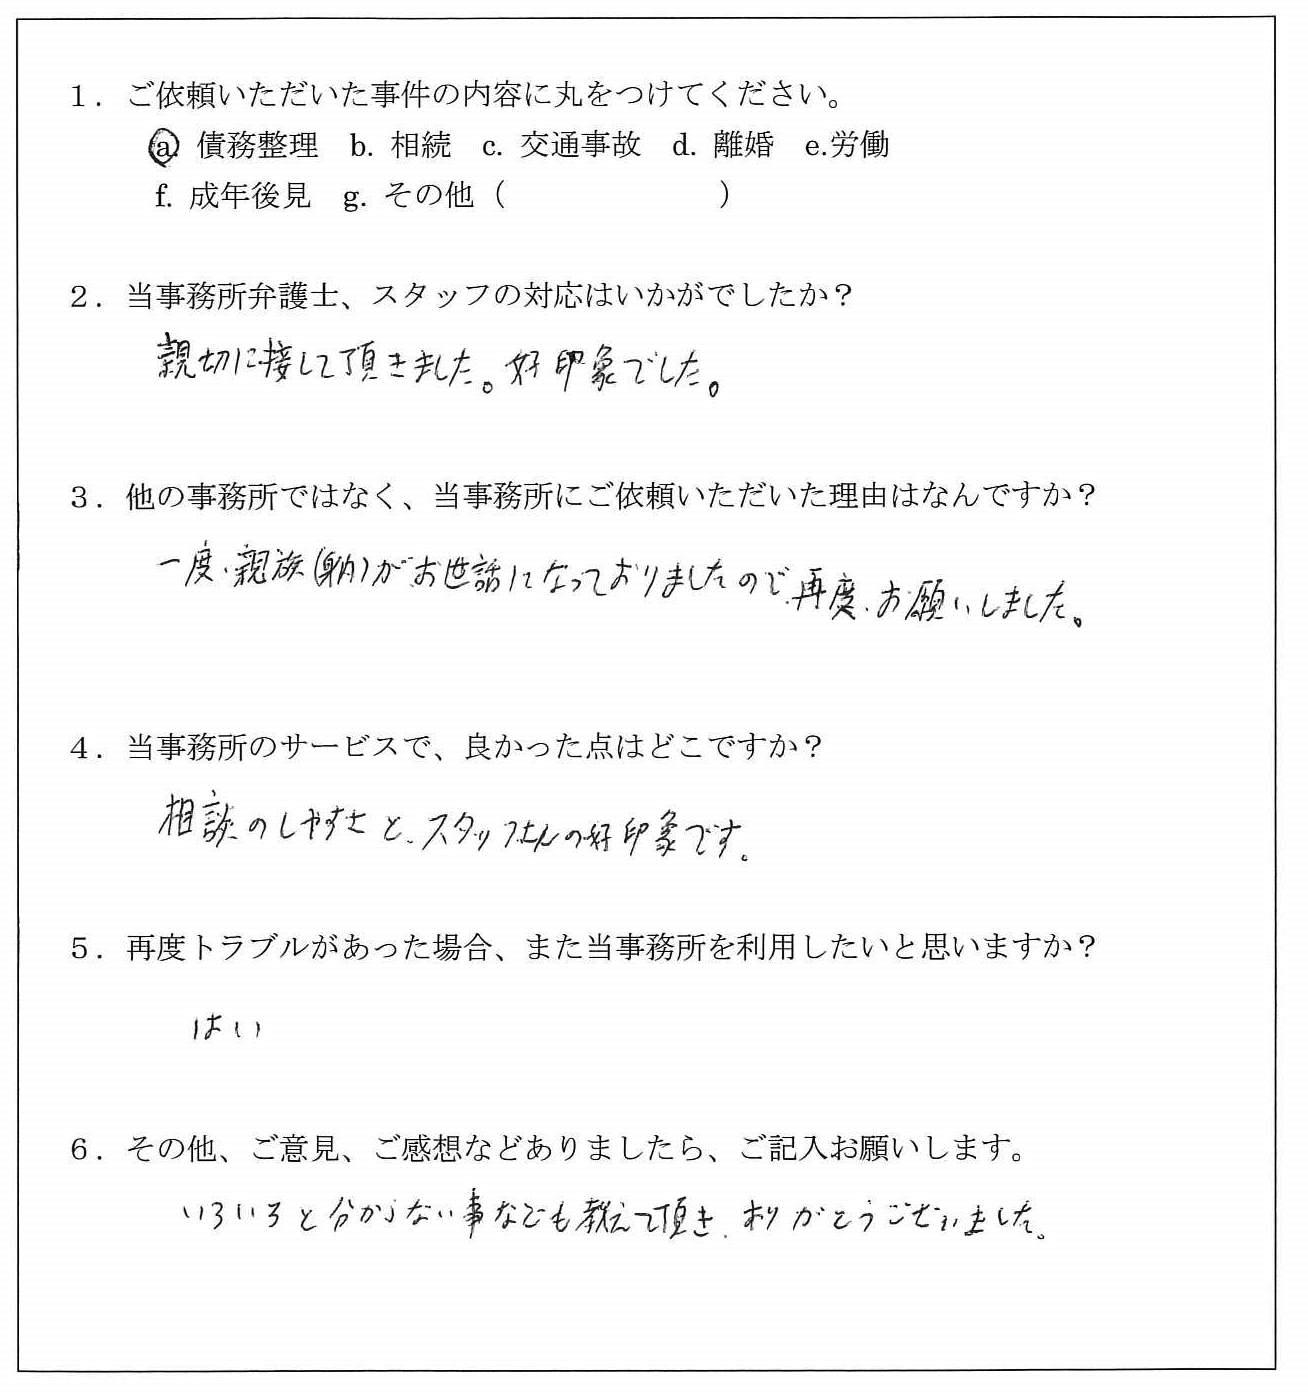 １．ご依頼いただいた事件の内容に丸をつけてください。
a. 債務整理　b. 相続　c. 交通事故　d. 離婚　e.労働
f. 成年後見　g. その他（　　　　　　　）
２．当事務所弁護士、スタッフの対応はいかがでしたか？
親切に接して頂きました。好印象でした。
３．他の事務所ではなく、当事務所にご依頼いただいた理由はなんですか？
一度、親族(身内)がお世話になっておりましたので、再度、お願いしました。
４．当事務所のサービスで、良かった点はどこですか？
相談のしやすさと、スタッフさんの好印象です。
５．再度トラブルがあった場合、また当事務所を利用したいと思いますか？
はい
６．その他、ご意見、ご感想などありましたら、ご記入お願いします。
いろいろと分からない事なども教えて頂き、ありがとうございました。